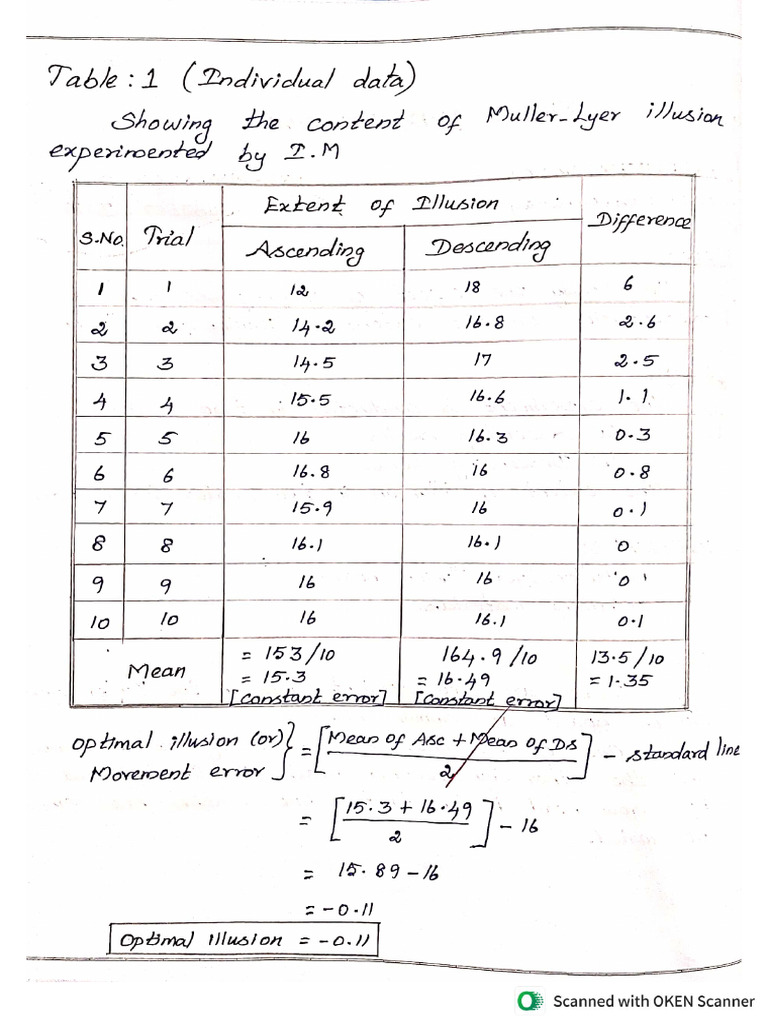 Table : 1 (Individual data)
Showing the content of Muller-Lyer illusion
experimented by I.M
S.No. Trial Extent of Illusion Difference
Ascending Descending
1 1 12 18 6
2 2 14.2 16.8 2.6
3 3 14.5 17 2.5
4 4 15.5 16.6 1.1
5 5 16 16.3 0.3
6 6 16.8 16 0.8
7 7 15.9 16 0.1
8 8 16.1 16.1 0
9 9 16 16 0
10 10 16 16.1 0.1
Mean = 153/10 164.9/10 13.5/10
= 15.3 = 16.49 = 1.35
[Constant error] [Constant error]
Optimal illusion (or) } = [Mean of Asc + Mean of Ds / 2] - standard line
Movement error
= [15.3 + 16.49 / 2] - 16
= 15.89 - 16
= -0.11
Optimal illusion = -0.11
Scanned with OKEN Scanner